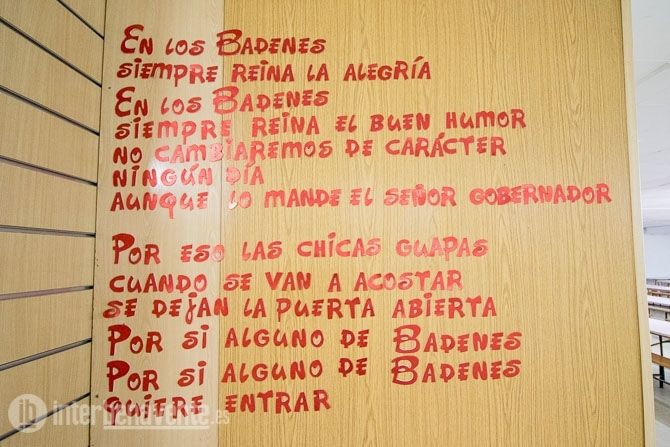 En los Badenes
siempre reina la alegría
En los Badenes
siempre reina el buen humor
no cambiaremos de carácter
ningún día
aunque lo mande el señor gobernador
Por eso las chicas guapas
cuando se van a acostar
se dejan la puerta abierta
Por si alguno de Badenes
Por si alguno de Badenes
quiere entrar
ib interbenavente.es